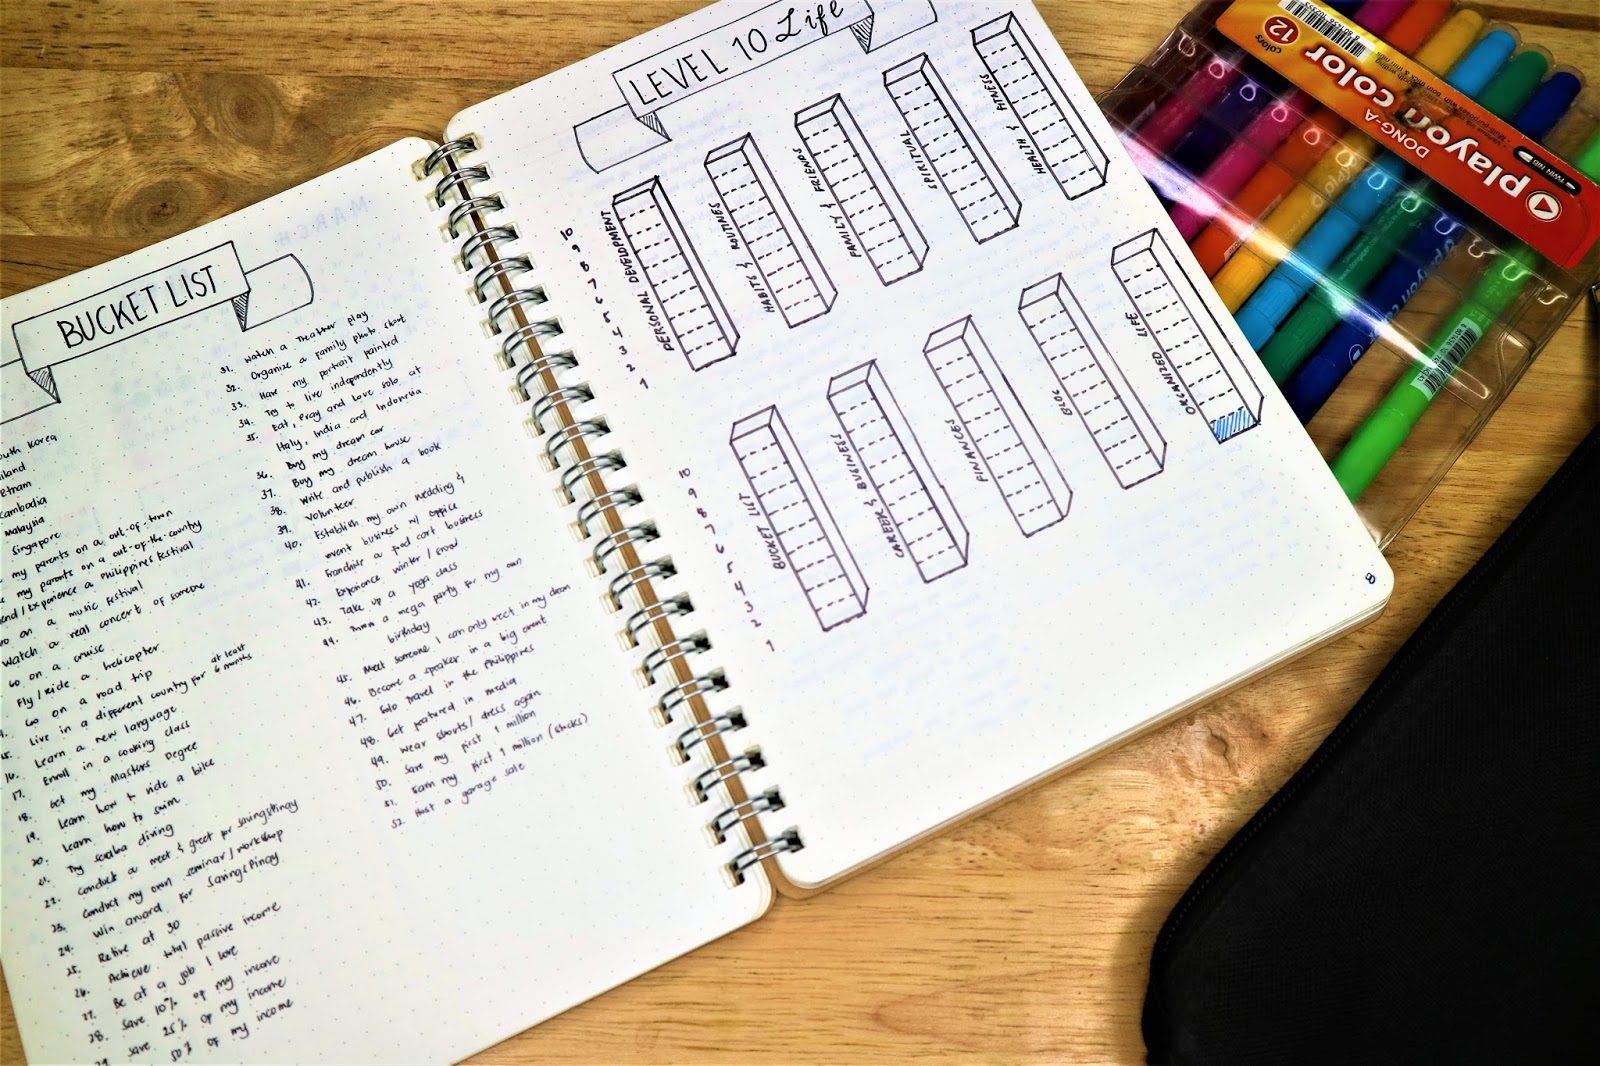 BUCKET LIST
outh Korea
ailand
etnam
Cambodia
Malaysia
Singapore
my parents on a out-of-town
my parents on a out-of-the-country
end/Experience a Philippines festival
Go on a music festival
Watch a real concert of someone
Go on a cruise
Fly/ride a helicopter
Go on a road trip
Live in a different country for at least 6 months
15. Learn a new language
16. Enroll in a cooking class
17. Get my Masters Degree
18. Learn how to ride a bike
19. Learn how to swim
20. Try scuba diving
21. Conduct a meet & greet for savingspinay
22. Conduct my own seminar/workshop
23. Win award for SavingsPinay
24. Retire at 30
25. Achieve total passive income
26. Be at a job I love
27. Save 10% of my income
28. Save 25% of my income
29. 50% of my income
31. Watch a Theather play
32. Organize a family photo shoot
33. Have my portrait painted
34. Try to live independently
35. Eat, Pray and Love solo at
Italy, India and Indonesia
36. Buy my dream car
37. Buy my dream house
38. Write and publish a book
39. Volunteer
40. Establish my own wedding &
event business w/ office
41. Franchise a food cart business
42. Experience winter/snow
43. Take up a yoga class
44. Throw a mega party for my own
birthday
45. Meet someone I can only meet in my dream
46. Become a speaker in a big event
47. Solo travel in the Philippines
48. Get featured in media
49. Wear shorts/dress again
50. Save my first 1 million
51. Earn my first 1 million (stocks)
52. Host a garage sale
MARCH
LEVEL 10 Life
10
9
8
7
6
5
4
3
2
1
PERSONAL DEVELOPMENT
HABITS & ROUTINES
FAMILY & FRIENDS
SPIRITUAL
HEALTH & FITNESS
10
9
8
7
6
5
4
3
2
1
BUCKET LIST
CAREER & BUSINESS
FINANCES
BLOG
ORGANIZED LIFE
8
12 colors
DONG-A
playon color
TWIN NIB